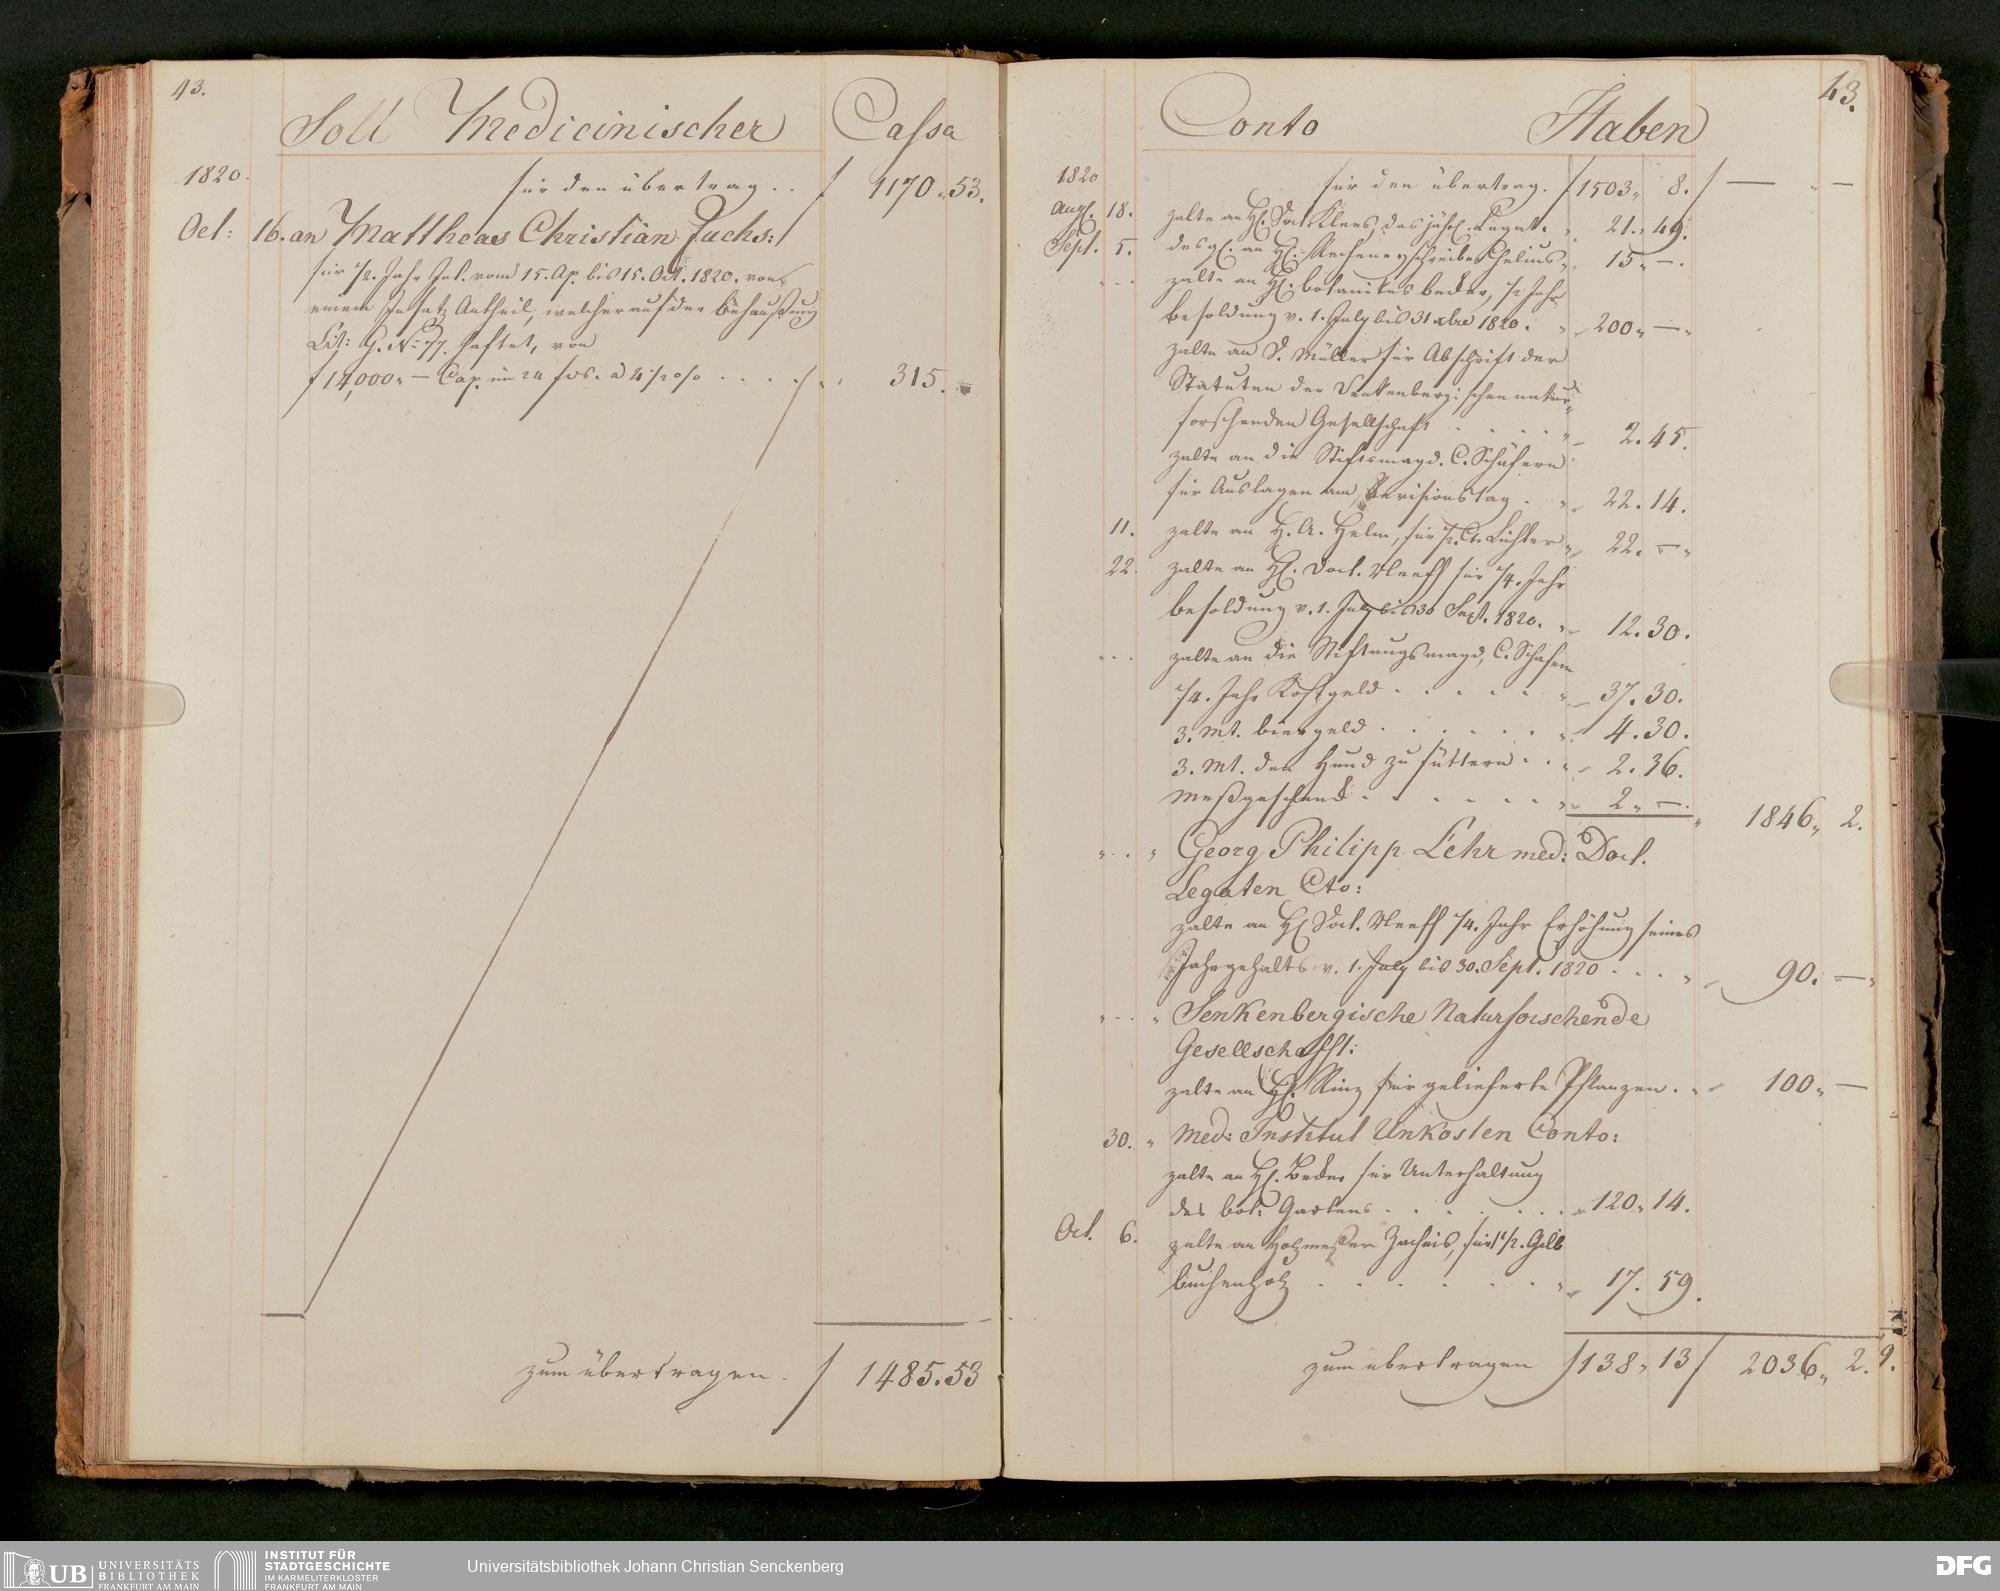 43.
Soll Medicinischer Cassa
1820. für den übertrag . . f 1170 „ 53.
Oct: 16. an Mattheas Christian Fuchs:
für 1/2. Jahr Int. vom 15. Ap. bis 15. Oct. 1820. von
einem Insatz Antheil, welcher auf der Behaußung
Lit: G. No. 77. haftet, von
f 14,000 „ — Cap. im 24 f %. a 4 1/2 % . . . . 315. —
zum übertragen . f 1485. 53
43.
Conto Haben
1820 für den übertrag . f 1503 „ 8. f — „ —
Augt. 18. zalte an H. Doct. Klees, das jährl. Legat . „ 21. 49.
Sept. 5. desgl. an H. Recheneyschreiber Chelius „ 15 „ —.
zalte an H. botanikus beder, 1/2 Jahr
besoldung v. 1. July bis 31 xbre 1820. „ 200 „ — „
zalte an S. Müller für Abschrift der
Statuten der Senkenberg: schen natur„
forschenden Gesellschaft . . . . „ 2. 45.
zalte an die Stiftsmagd. C. Schäfern
für Auslagen am Revisionstag . „ 22. 14.
11. zalte an H. A. Helm, für 1/2. Ct. Lichter „ 22. — „
22. zalte an H. Doct. Neeff für 1/4. Jahr
besoldung v. 1. July bis 30 Sept. 1820. „ 12. 30.
zalte an die Stiftungsmagd, C. Schäfern
1/4. Jahr Kostgeld . . . . . „ 37. 30.
3. Mt. biergeld . . . . . . „ 4. 30.
3. Mt. den Hund zu füttern . . „ 2. 36.
Meßgeschenk . . . . . . „ 2 „ —.
„ 1846 „ 2.
„ . . „ Georg Philipp Lehr med: Doct.
Legaten Cto:
zalte an H. Doct. Neeff 1/4. Jahr Erhöhung seines
Jahrgehalts v. 1. July bis 30. Sept. 1820 . . . „ 90. — „
„ . . „ Senkenbergische Naturforschende
Gesellschafft:
zalte an H. Rinz für gelieferte Pflanzen . „ 100 „ —
30. „ Med: Institut Unkosten Conto:
zalte an H. Beder für Unterhaltung
des bot: Gartens . . . . . . . 120 „ 14.
Oct. 6. zalte an Holzmesser Zacheis, für 1 1/2. Gilb
buchenholz . . . . . . . „ 17. 59.
zum übertragen f 138 „ 13 f 2036 „ 2.
9.
UB UNIVERSITÄTS
BIBLIOTHEK
FRANKFURT AM MAIN
INSTITUT FÜR
STADTGESCHICHTE
IM KARMELITERKLOSTER
FRANKFURT AM MAIN
Universitätsbibliothek Johann Christian Senckenberg
DFG